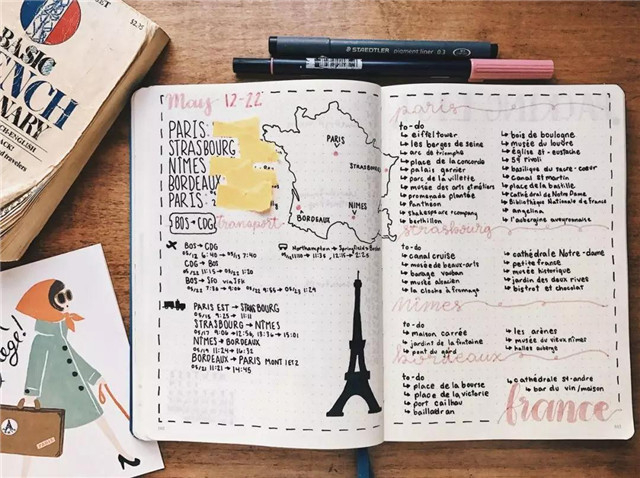 BASIC
FRENCH
DICTIONARY
FRENCH-ENGLISH
STAEDTLER pigment liner 0.3
May 12-22
PARIS:
STRASBOURG
NIMES
BORDEAUX
PARIS:
BOS → CDG
transport
PARIS
STRASBOURG
NIMES
BORDEAUX
BOS → CDG
05/12 6:40 → 05/13 7:40
CDG → BOS
05/22 11:15 → 05/22 1:20
BOS → SFO via JFK
Northampton → Springfield → Boston
PARIS EST → STRASBOURG
05/15 9:25 → 11:11
STRASBOURG → NÎMES
NÎMES → BORDEAUX
05/19 11:24 → 16:32
BORDEAUX → PARIS MONT 1ET2
05/21 11:21 → 14:45
paris
to-do
↳ eiffel tower
↳ les berges de seine
↳ arc de triomphe
↳ place de la concorde
↳ palais garnier
↳ parc de la villette
↳ musée des arts et métiers
↳ promenade plantée
↳ Pantheon
↳ shakespeare + company
↳ berthillon
↳ bois de boulogne
↳ musée du louvre
↳ église st-eustache
↳ 59 rivoli
↳ basilique du sacre-coeur
↳ canal st martin
↳ place de la bastille
↳ cathédral de Notre Dame
↳ Bibliothèque Nationale de France
↳ angelina
↳ l'auberge aveyronnaise
strasbourg
to-do
↳ canal cruise
↳ musée de beaux-arts
↳ barage vauban
↳ musée alsacien
↳ la cloche à fromage
↳ cathédrale Notre-dame
↳ petite france
↳ musée historique
↳ jardin des deux rives
↳ bistrot et chocolat
nîmes
to-do
↳ maison carrée
↳ jardin de la fontaine
↳ pont du gard
↳ les arènes
↳ musée du vieux nîmes
↳ halles auberge
bordeaux
to-do
↳ place de la bourse
↳ place de la victoire
↳ port cailhau
↳ cathédrale st-andre
↳ bar du vin/maison
france